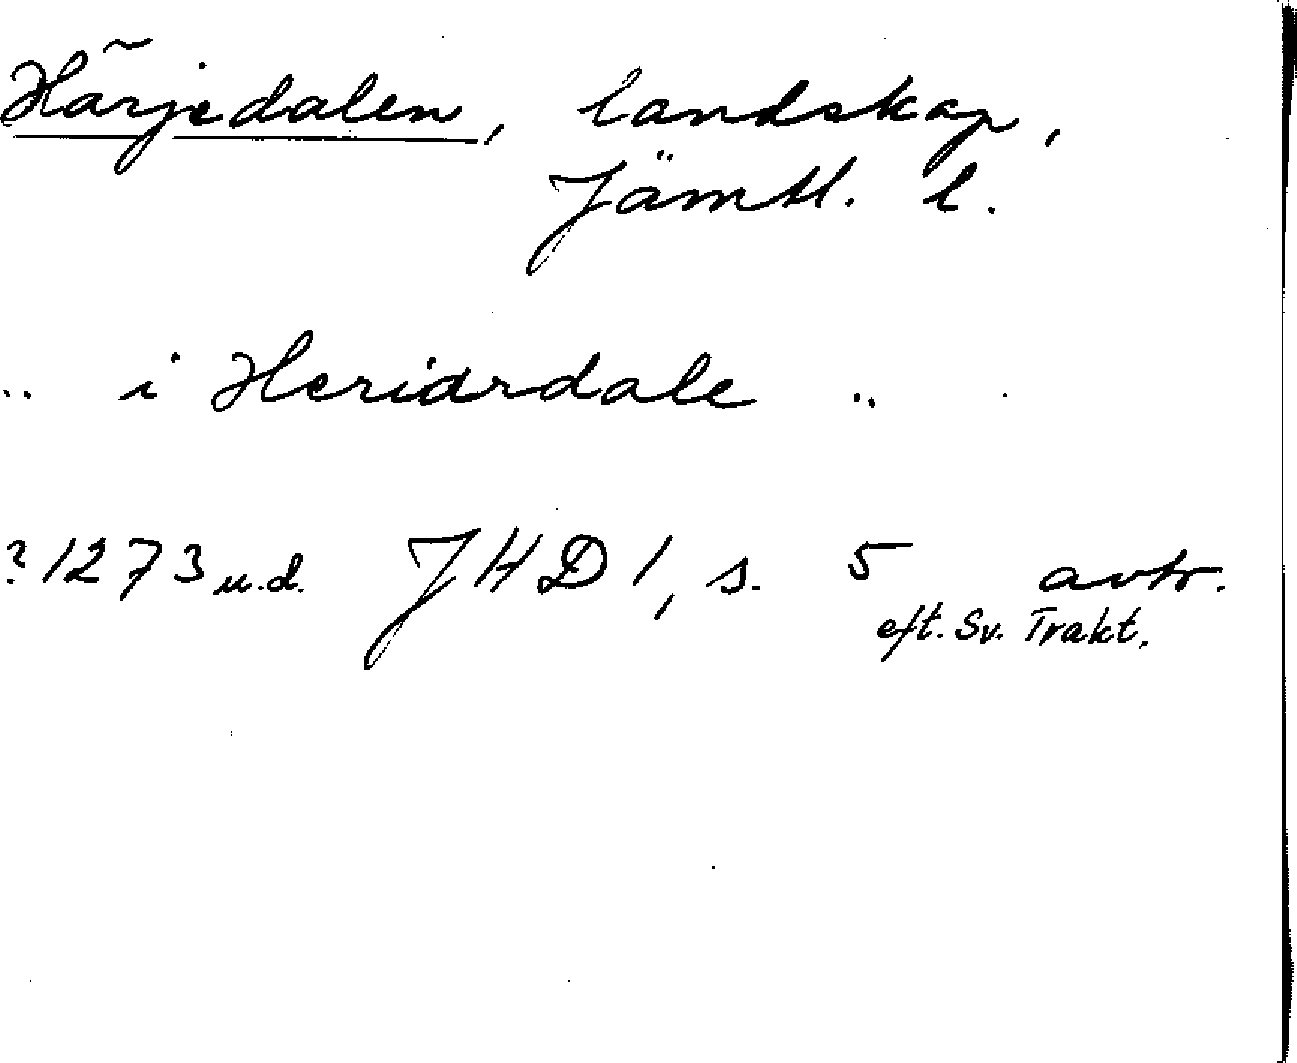 Härjedalen, landskap,
Jämtl. l.
.. i Heriardale ..
? 1273 u.d. JHD 1, s. 5 avtr.
eft. Sv. Trakt.